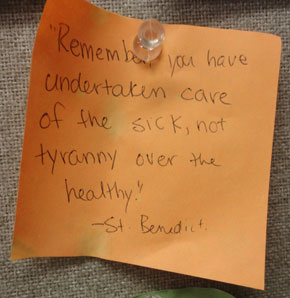 "Remember you have
undertaken care
of the sick, not
tyranny over the
healthy."
-St. Benedict.